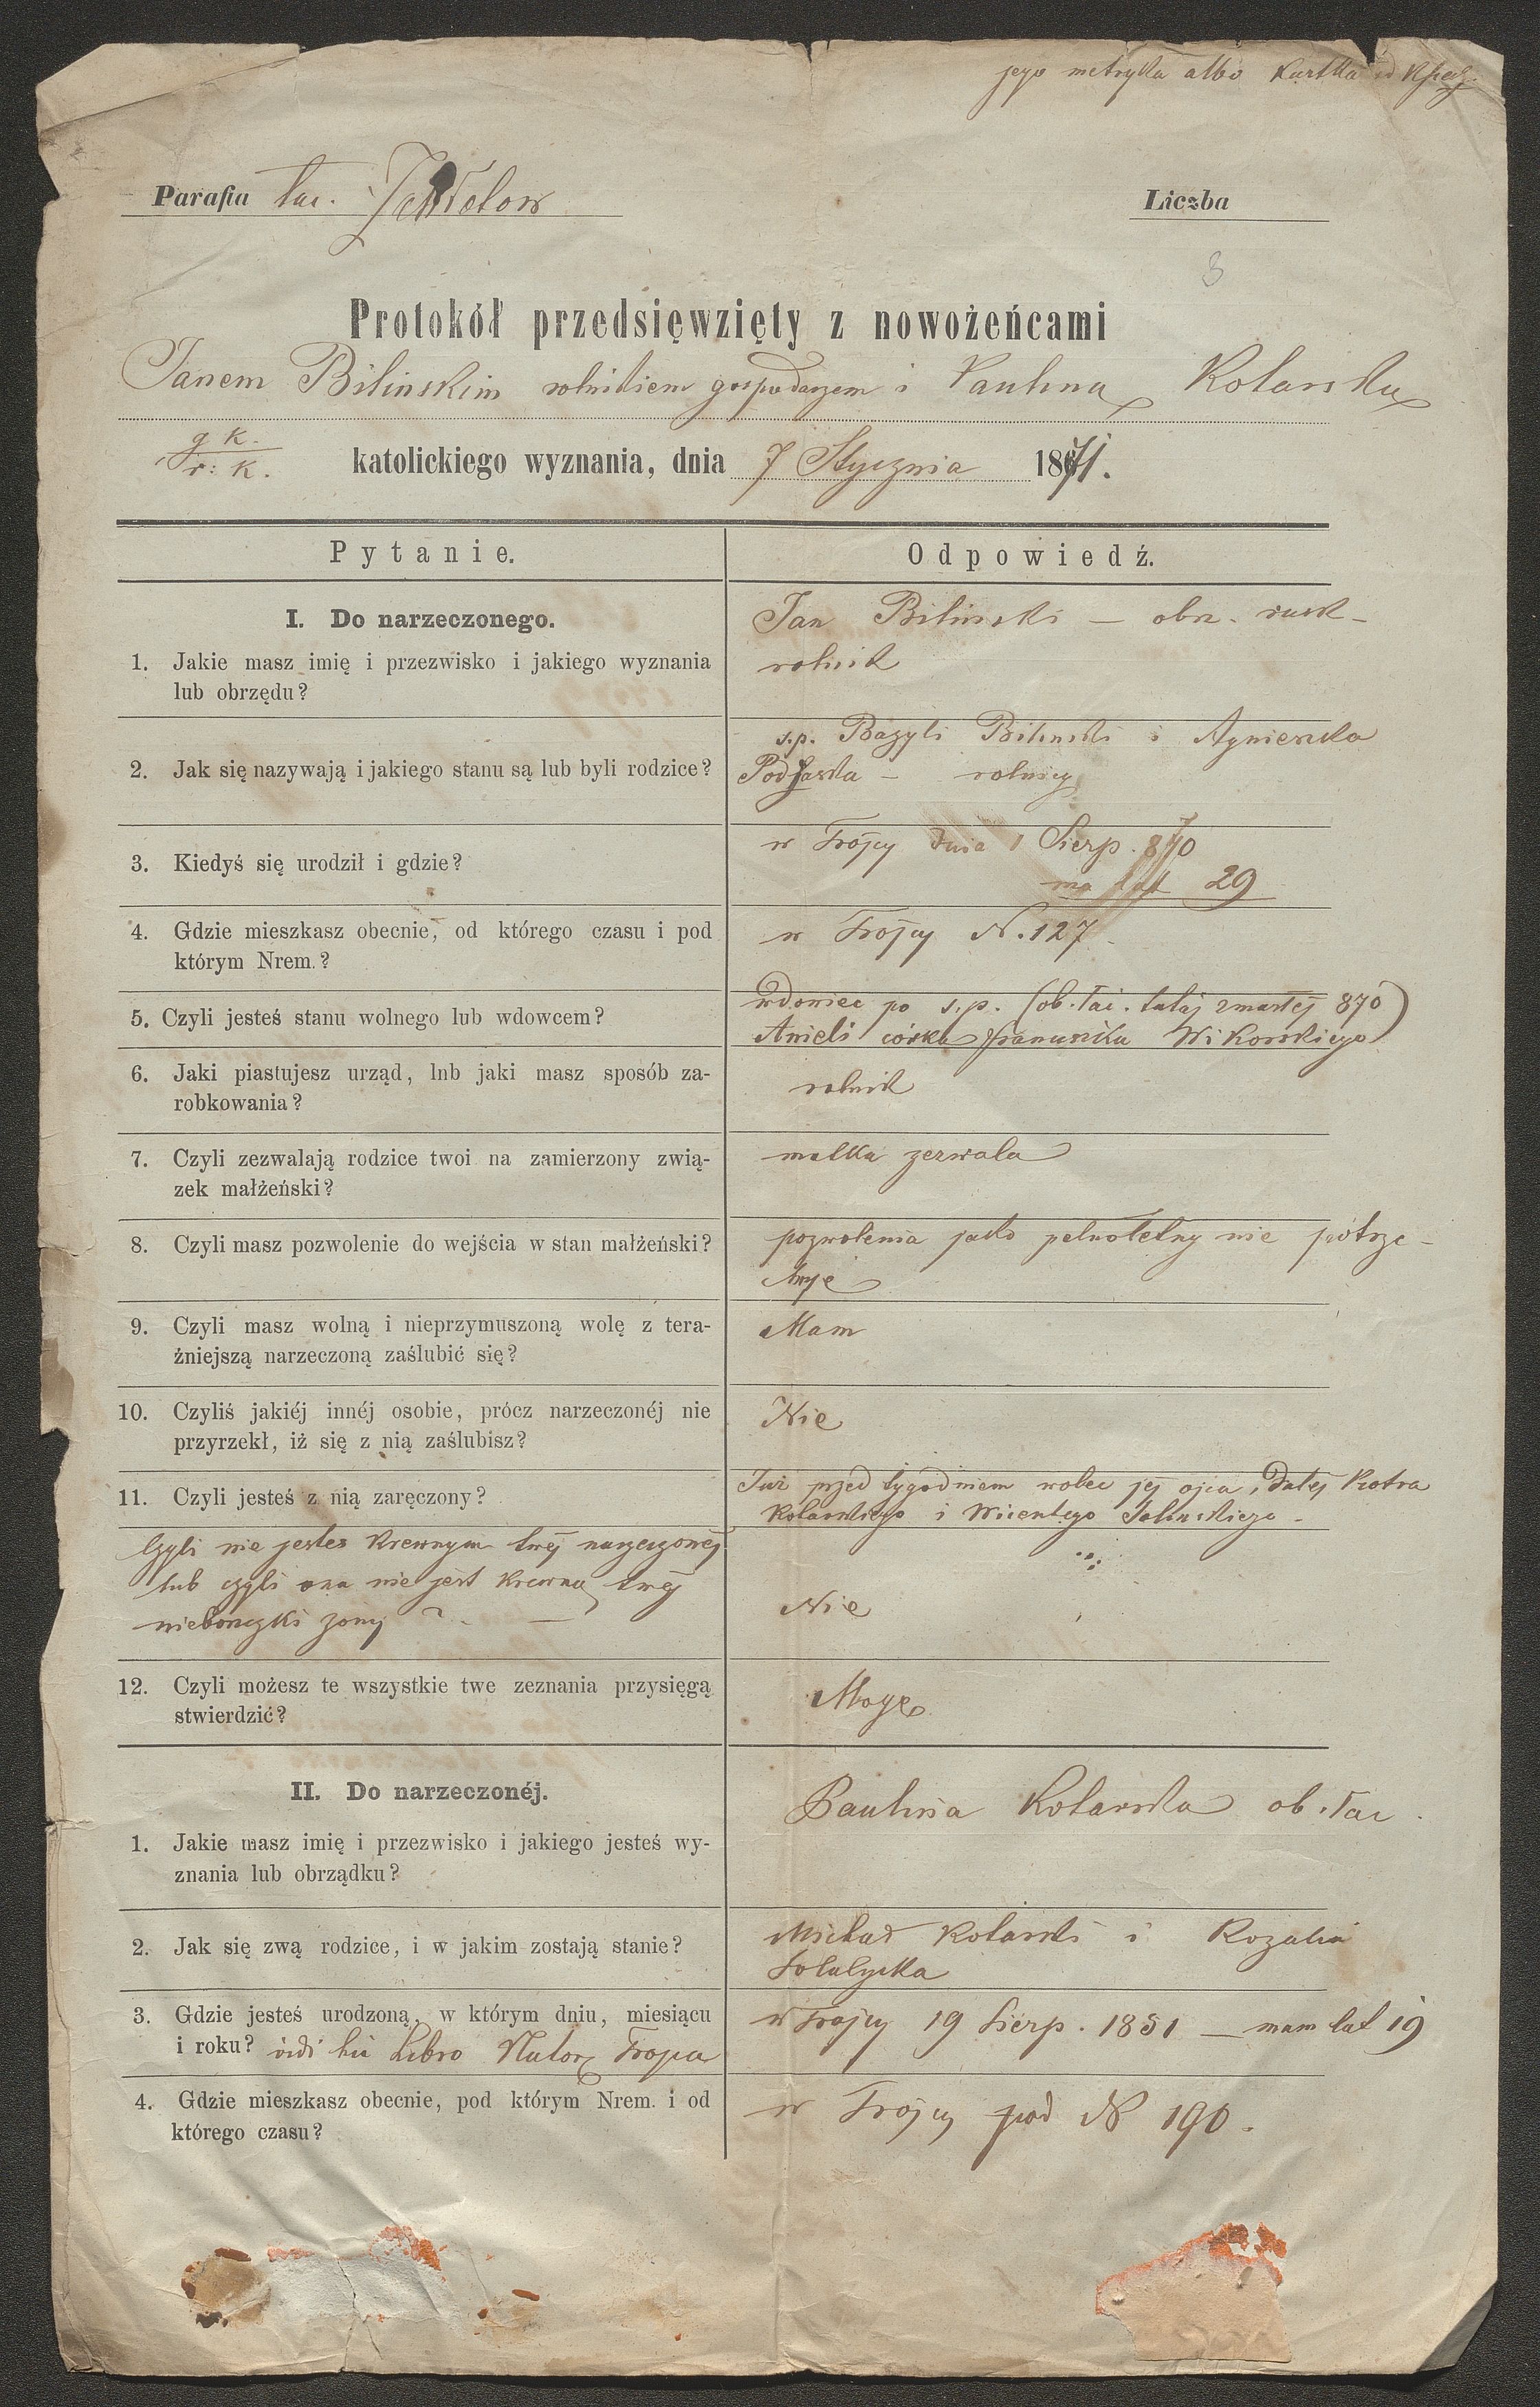 jego metryka albo Kartka od
Parafia łac.
Liczba
3
Protokół przedsięwzięty z nowożeńcami
Janem Bilinskim rolnikiem gospodarzem i Pauliną Kolarską
g k.
r: k.
katolickiego wyznania, dnia 7 Stycznia 1871.
Pytanie.
Odpowiedź.
I. Do narzeczonego.
1. Jakie masz imię i przezwisko i jakiego wyznania
lub obrzędu?
Jan Bilinski – obrz. rusk –
rolnik
2. Jak się nazywają i jakiego stanu są lub byli rodzice?
s.p. Bazyli Bilinski i Agnieszka
– rolnicy
3. Kiedyś się urodził i gdzie?
w Trójcy dnia 1 Sierp.
ma lat 29
4. Gdzie mieszkasz obecnie, od którego czasu i pod
którym Nrem.?
w Trójcy N. 127
5. Czyli jesteś stanu wolnego lub wdowcem?
wdowiec po s.p. (ob. łać. tutaj zmarłej 870)
Anieli córka Franciszka
6. Jaki piastujesz urząd, lnb jaki masz sposób za-
robkowania?
rolnik
7. Czyli zezwalają rodzice twoi na zamierzony zwią-
zek małżeński?
matka zezwala
8. Czyli masz pozwolenie do wejścia w stan małżeński?
pozwolenia jako pełnoletny nie potrze-
buje
9. Czyli masz wolną i nieprzymuszoną wolę z tera-
źniejszą narzeczoną zaślubić się?
Mam
10. Czyliś jakiéj innéj osobie, prócz narzeczonéj nie
przyrzekł, iż się z nią zaślubisz?
Nie
11. Czyli jesteś z nią zaręczony?
Już przed tygodniem wobec jej ojca, dalej Piotra
Kolarskiego i Wicentego
Czyli nie jestes krewnym twéj narzeczonej
lub czyli ona nie jest krewną twéj
nieboszczki żony? –
Nie
12. Czyli możesz te wszystkie twe zeznania przysięgą
stwierdzić?
Mogę
II. Do narzeczonéj.
1. Jakie masz imię i przezwisko i jakiego jesteś wy-
znania lub obrządku?
Paulina Kolarska ob. łac.
2. Jak się zwą rodzice, i w jakim zostają stanie?
Michał Kolarski i Rozalia
3. Gdzie jesteś urodzoną, w którym dniu, miesiącu
i roku? vidi hic Libro Nator Trojca
w Trojcy 19 Sierp. 1851 – mam lat 19
4. Gdzie mieszkasz obecnie, pod którym Nrem. i od
którego czasu?
w Trójcy pod N 190.